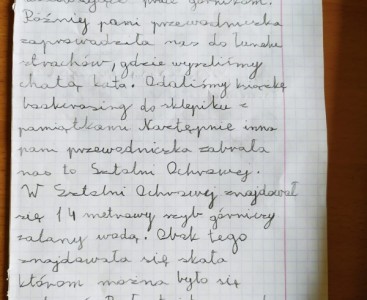 pracę górniczą.
Później pani przewodniczka
zaprowadziła nas do lunchu
strachów, gdzie wyszliśmy
chatą kata. Oddaliśmy książkę
do sklepiku z
pamiątkami Następnie inna
pani przewodniczka zabrała
nas to Sztalni Ochrowej.
W Sztalni Ochrowej znajdował
się 14 metrowy szyb górniczy
zalany wodą. Obok tego
znajdowała się skała
którom można było się